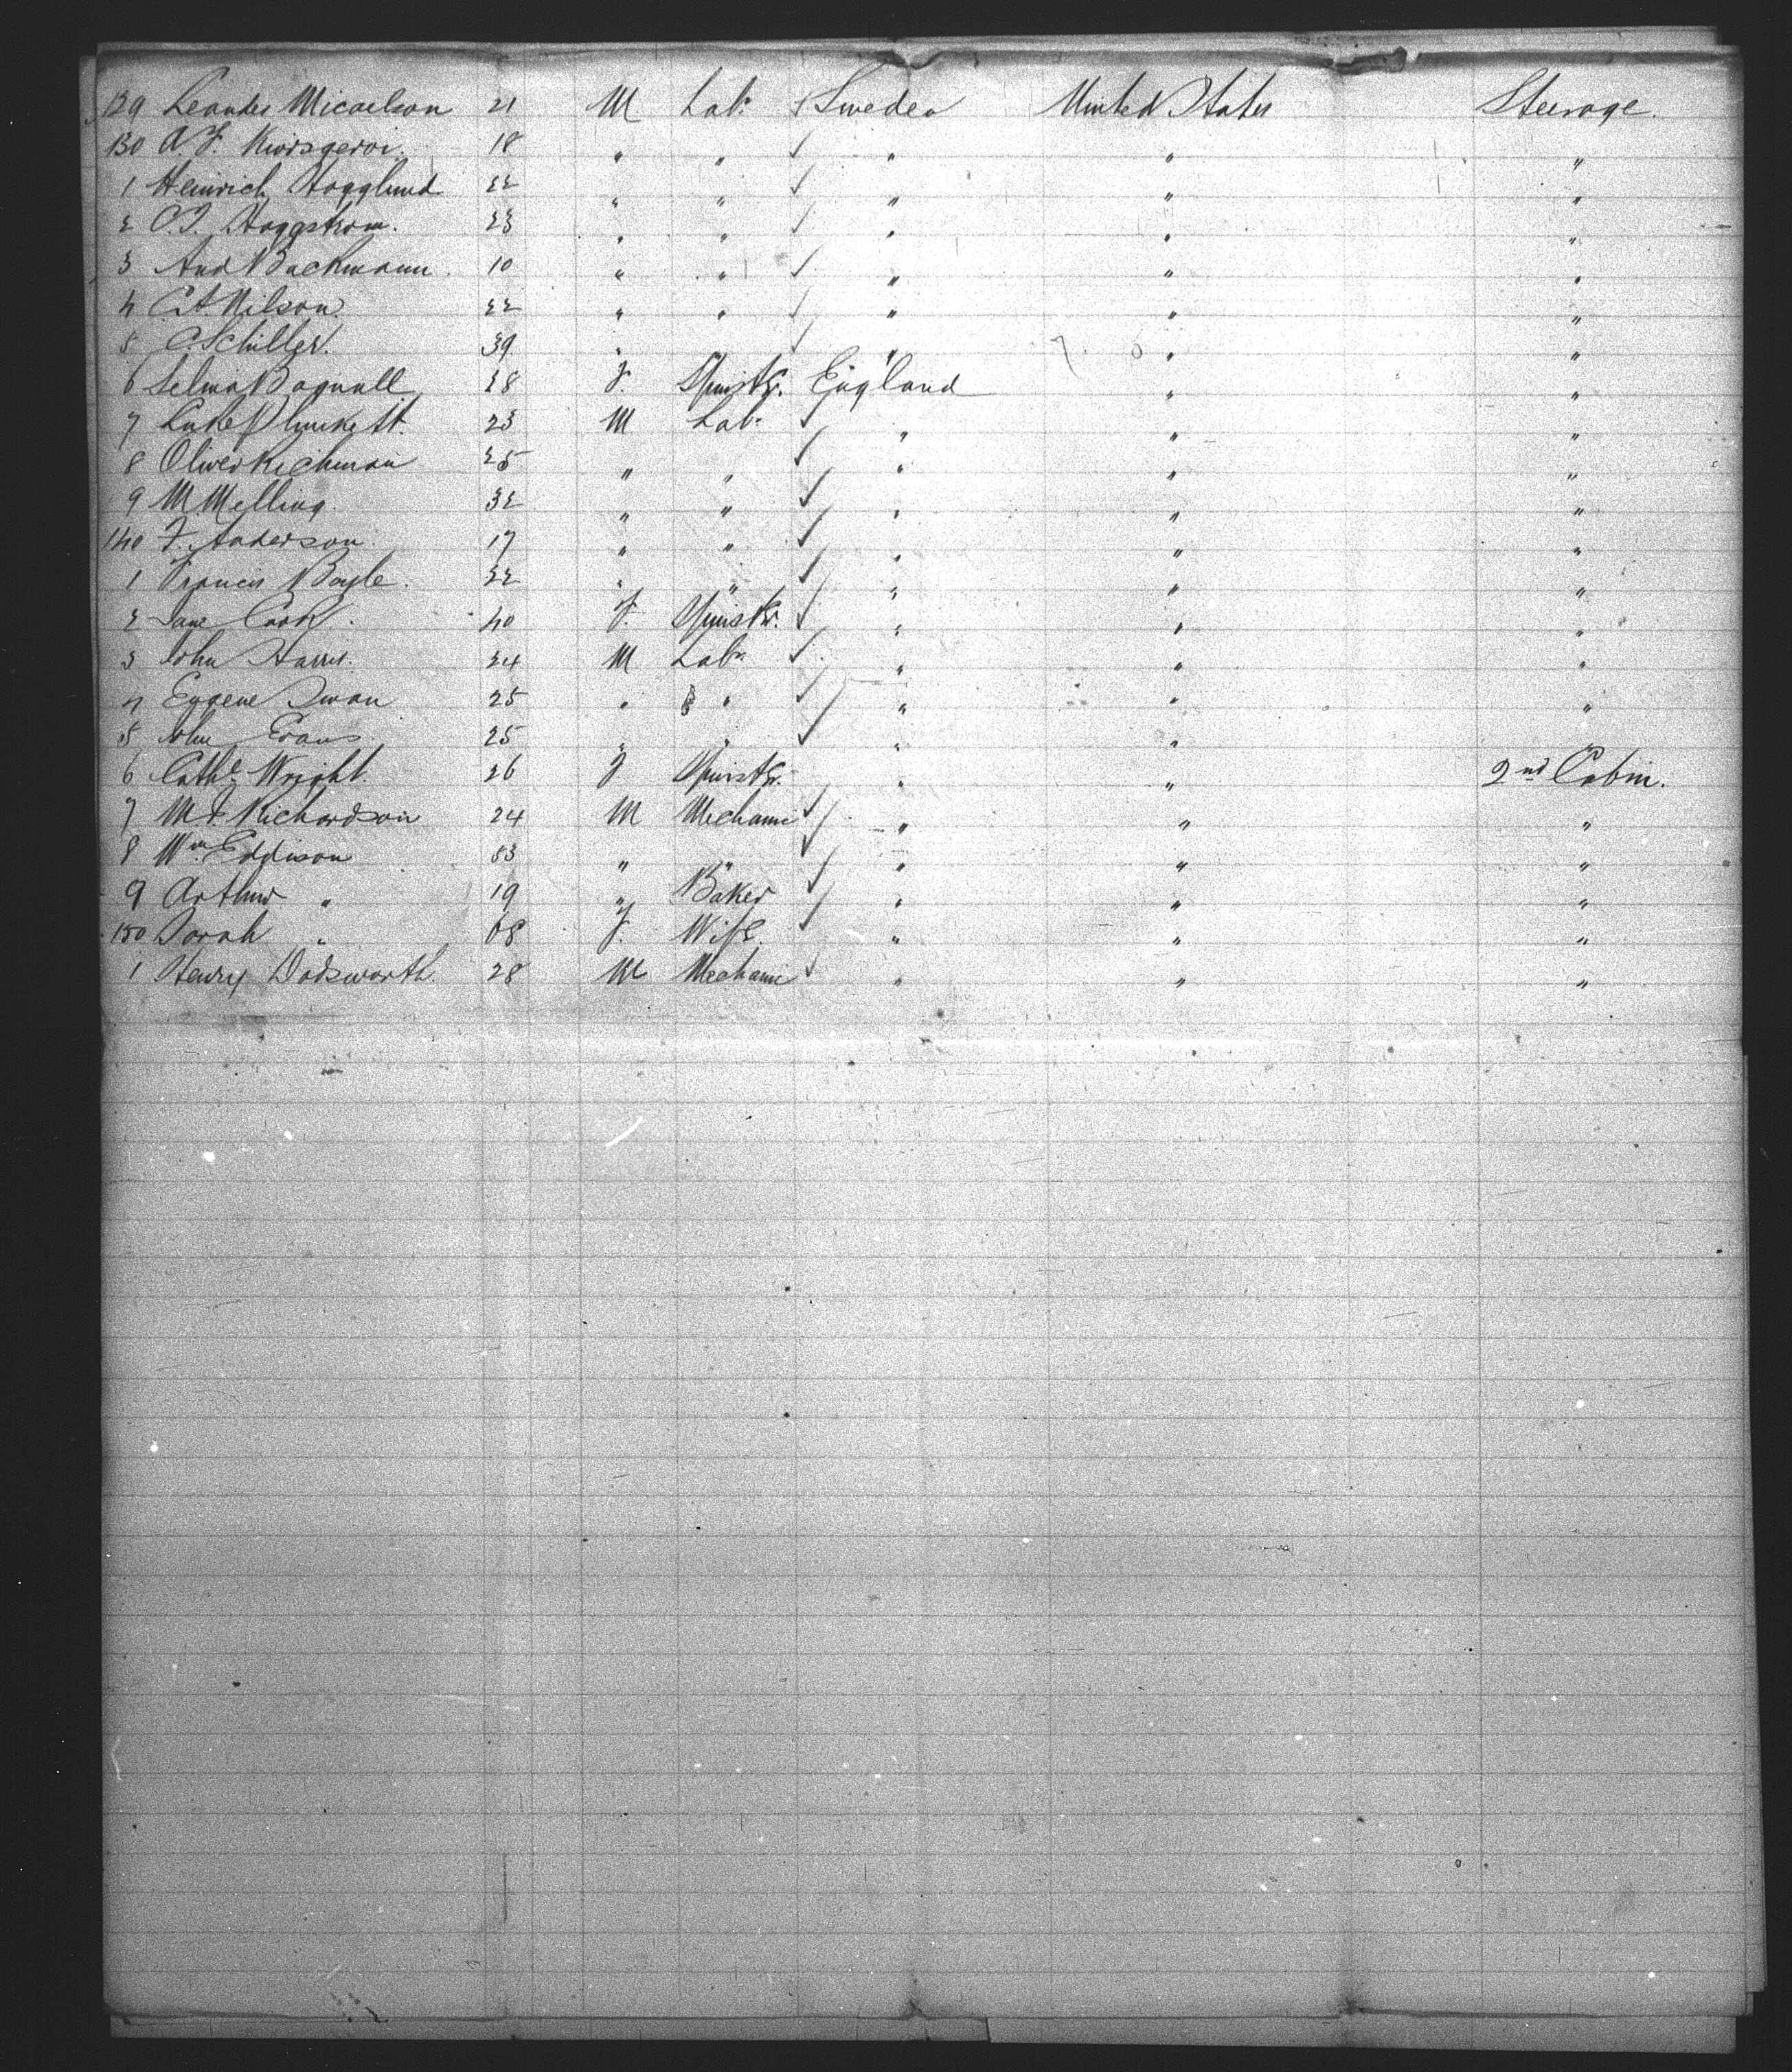 129 Leander Micaelson 21 M Labr Sweden United States Steerage.
130 A.F. 18 " " " " "
1 Heinrich Hogglund 22 " " " " "
2 C.J. Haggstrom. 23 " " " " "
3 And Bachmann. 10 " " " " "
4 C.A. Nilson 22 " " " " "
5 C. Schiller. 39 " " " "
6 Selina Bagnall 28 F. Spinstr. England " "
7 Luke Plunkett. 23 M Labr " " "
8 Oliver Richman 25 " " " " "
9 M. Melling. 32 " " " " "
140 F. Anderson. 17 " " " " "
1 Francis Boyle. 22 " " " " "
2 Jane Cook. 40 F. Spinstr. " " "
3 John Harris. 24 M Labr " " "
4 Eugene Swan 25 " " " " "
5 John Evans. 25 " " " " "
6 Cathe Wright. 26 F Spinstr. " " 2nd Cabin.
7 Richardson 24 M Mechanic " " "
8 Wm Eddison 53 " " " " "
9 Arthur " 19 " Baker " " "
150 Sarah " 68 F. Wife. " " "
1 Henry Dodsworth. 28 M Mechanic " " "